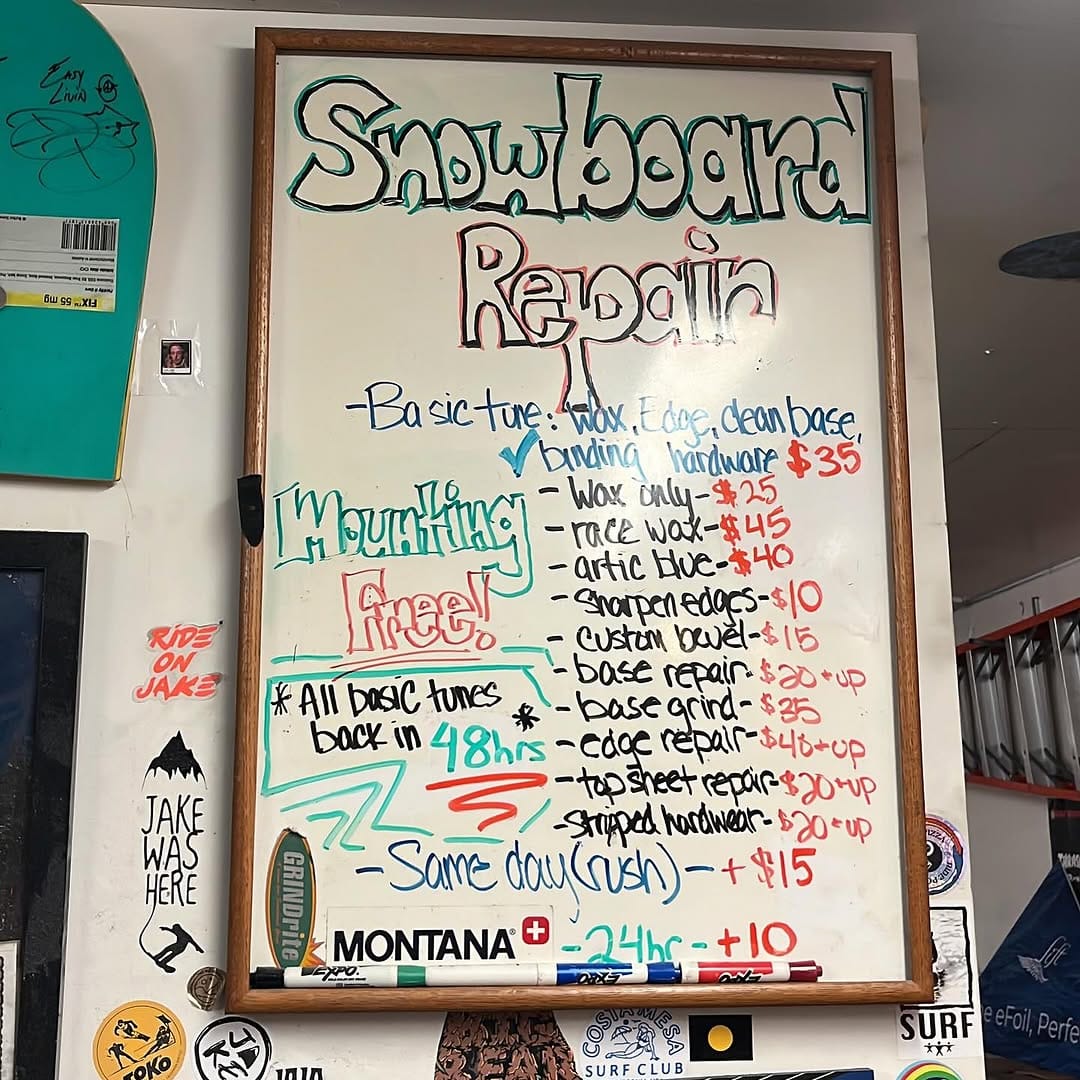 Easy
Livin
FIX™ 55 mg
Snowboard
Repair
-Basic tune: Wax, Edge, clean base,
✓ binding hardware $35
- Wax only-$25
- race wax-$45
- artic blue-$40
- sharpen edges-$10
- custom bevel-$15
- base repair-$20+up
- base grind-$35
- edge repair-$40+up
- top sheet repair-$20+up
- stripped hardwear-$20+up
Mounting
Free!
* All basic tunes
back in 48hrs *
- Same day(rush) - + $15
- 24hr - +10
GRINDrite
MONTANA®
EXPO
EXPO
EXPO
RIDE
ON
JAKE
JAKE
WAS
HERE
TOKO
COSTA MESA
SURF CLUB
PIZZA
SURF
lift
e eFoil, Perfe